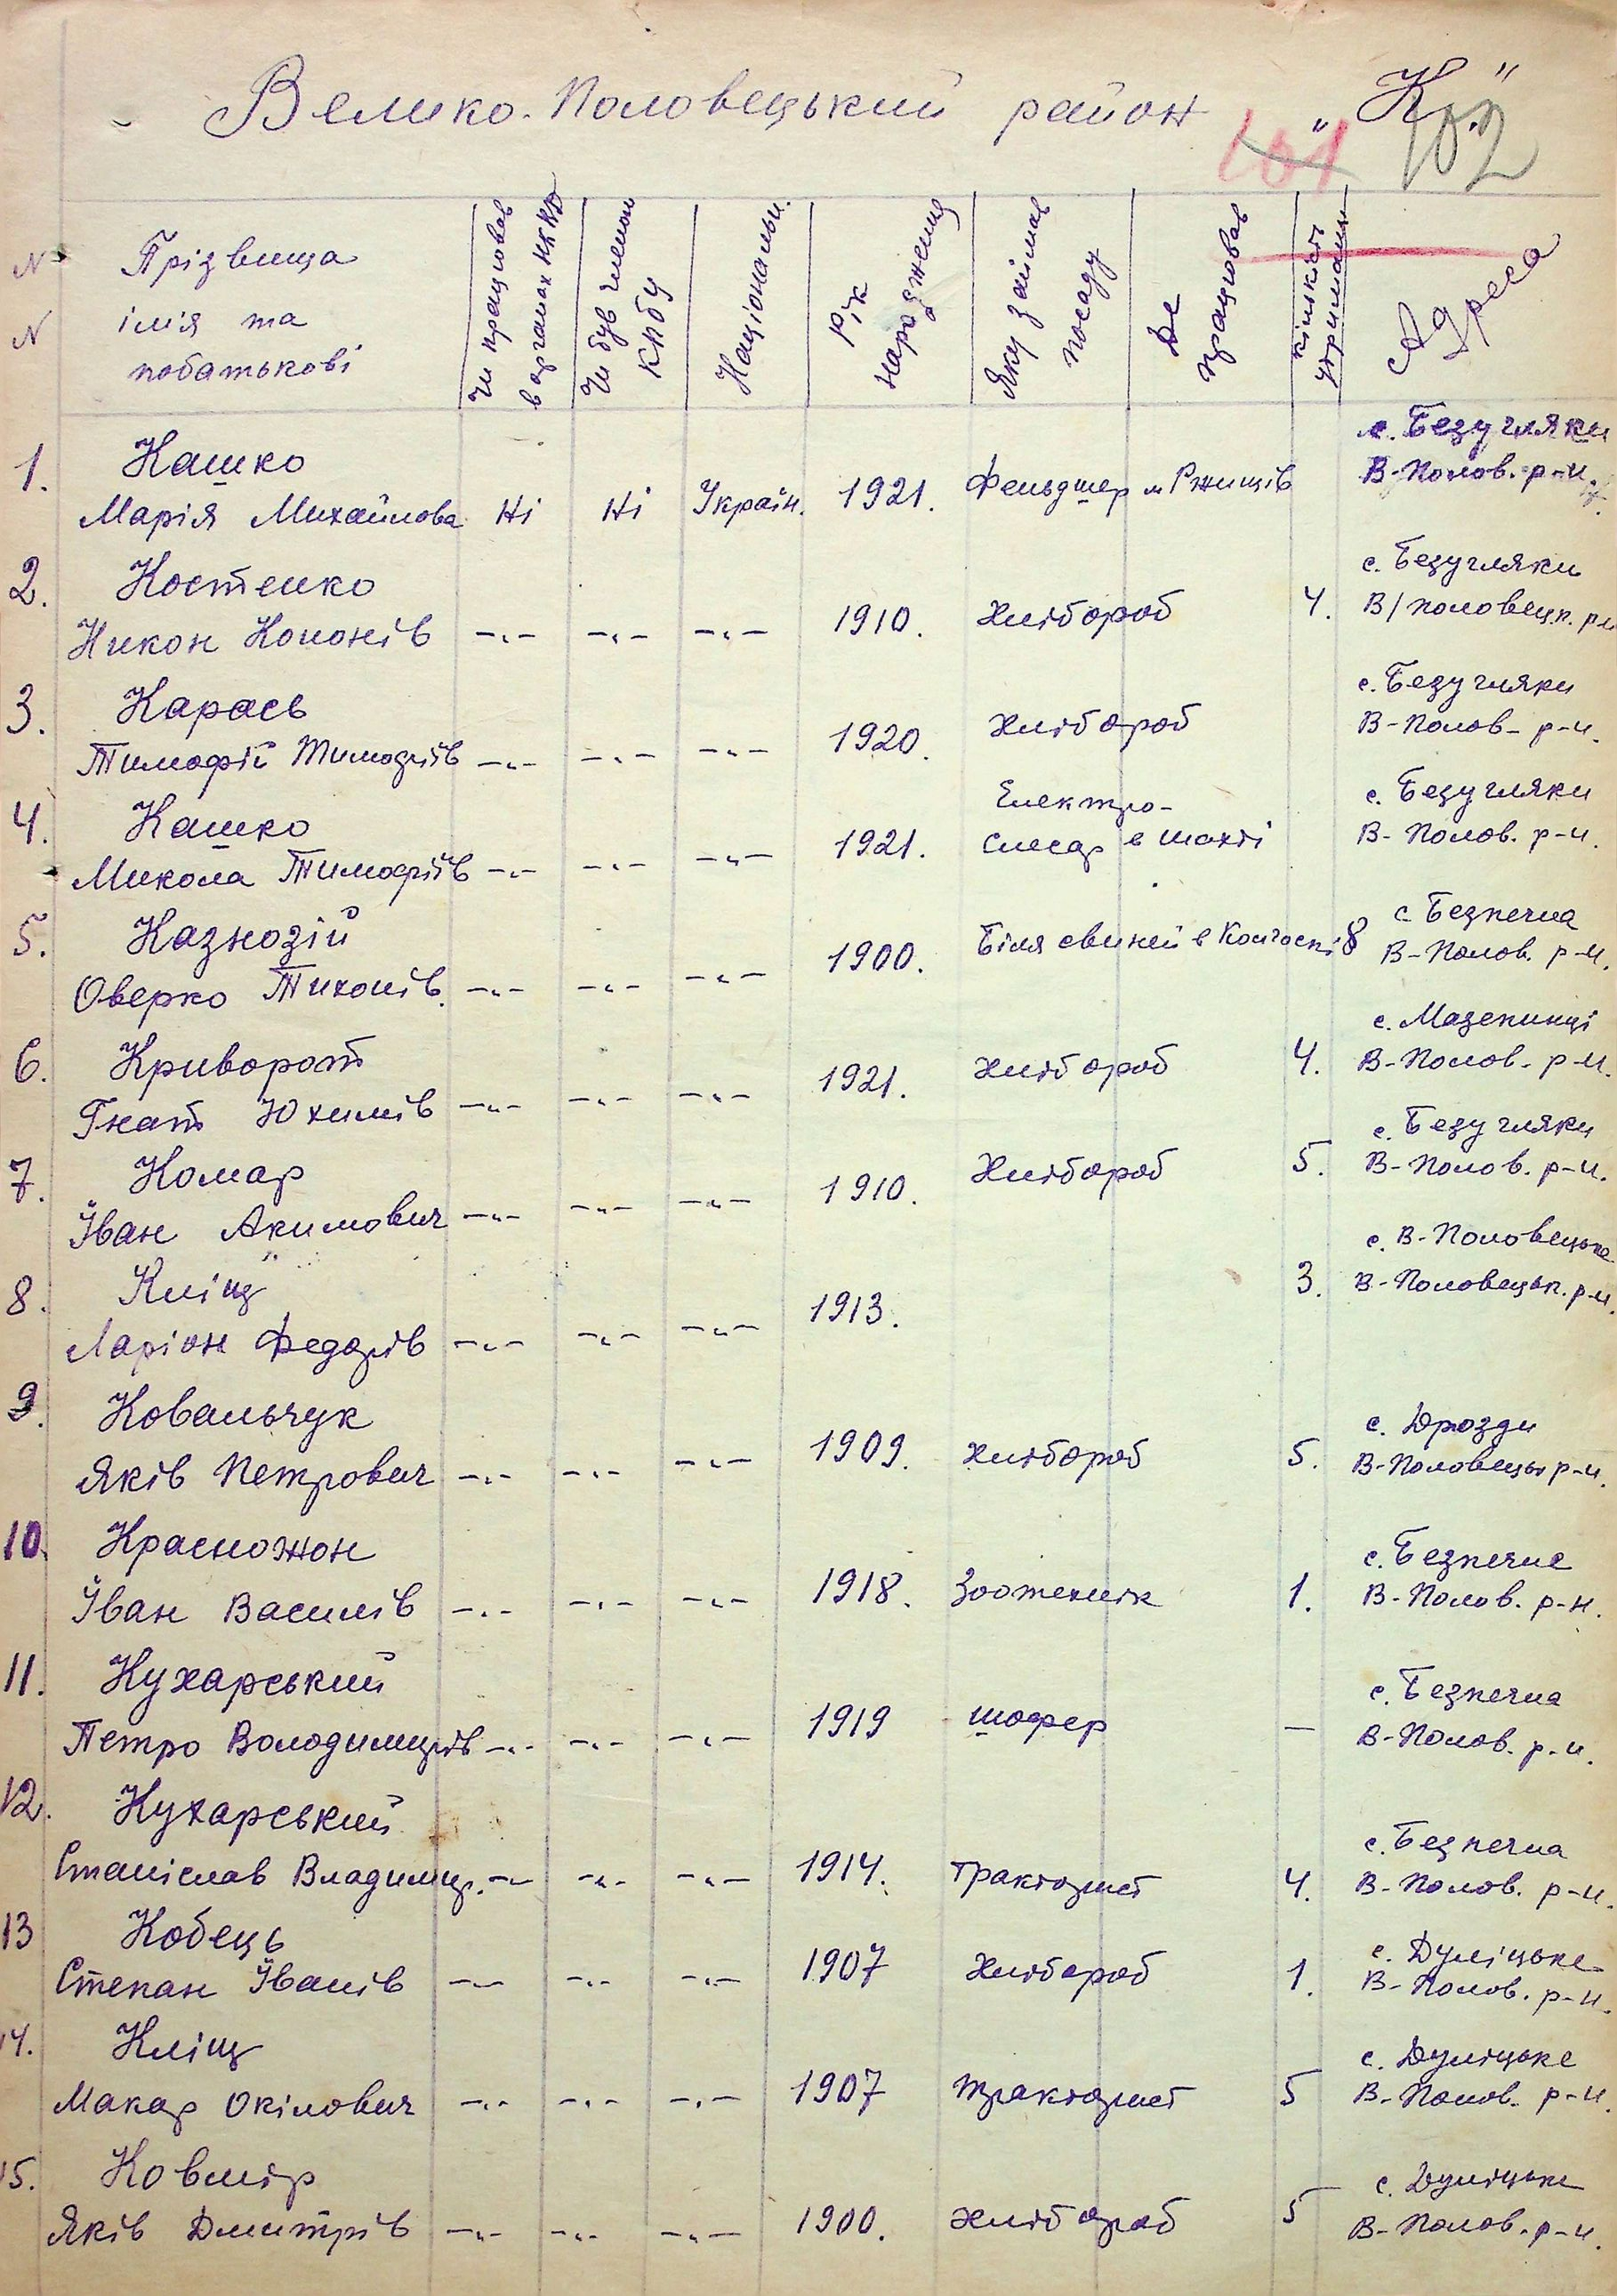 Велико-Половецький район „К"
101 102
N N
Прізвища
імія та
побатькові
Чи працював в органах НКВД
Чи був членом КПбУ
Національн.
Рік народження
Яку займав посаду
Де працював
кількість утриманц
Адреса
1. Кашко с. Безугляки
Марія Михайлова Ні Ні Україн. 1921. Фельдшер м Ржищів В-Полов. р-н.
2. Костенко с. Безугляки
Никон Кононів -"- -"- -"- 1910. Хлібороб 4. В/Половецк. р-н
3. Карась с. Безугляки
Тимофій Тимофіїв -"- -"- -"- 1920. Хлібороб В-Полов- р-н.
4. Кашко Електро- с. Безугляки
Микола Тимофіїв -"- -"- -"- 1921. слесар в шахті В-Полов. р-н.
5. Казнозій с Безпечна
Оверко Тихонів. -"- -"- -"- 1900. Біля свиней в Колгоспі 8 В-Полов. р-н.
6. Криворот с. Мазепинці
Гнат Юхимів -"- -"- -"- 1921. Хлібороб 4. В-Полов. р-н.
7. Комар с. Безугляки
Іван Акимович -"- -"- -"- 1910. Хлібороб 5. В-Полов. р-н.
8. Кліщ с. В-Половецьке
Ларіон Федорів -"- -"- -"- 1913. 3. В-Половецьк. р-н.
9. Ковальчук с. Дрозди
Яків Петрович -"- -"- -"- 1909. Хлібороб 5. В-Половецьк р-н.
10. Красножон с. Безпечне
Іван Василів -"- -"- -"- 1918. Зоотехнік 1. В-Полов. р-н.
11. Кухарський с. Безпечна
Петро Володимирів -"- -"- -"- 1919 шофер — В-Полов. р-н.
12. Кухарський с. Безпечна
Станіслав Владимир. -"- -"- -"- 1914. тракторист 4. В-Полов. р-н.
13 Кобець с. Дуліцьке
Степан Іванів -"- -"- -"- 1907 Хлібороб 1. В-Полов. р-н.
14. Кліщ с. Дуліцьке
Макар Окілович -"- -"- -"- 1907 тракторист 5 В-Полов. р-н.
15. Ковмір с. Дуліцьке
Яків Дмитрів -"- -"- -"- 1900. Хлібороб 5 В-Полов. р-н.